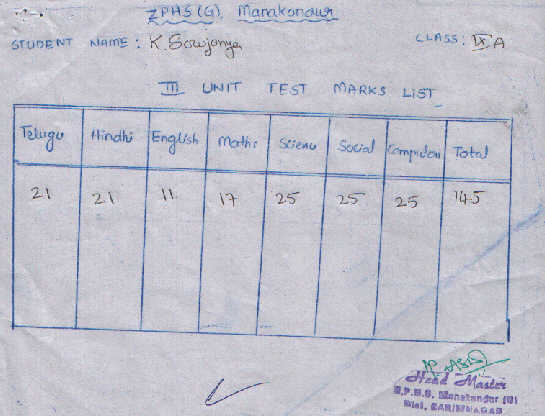 ZPHS(G), Manakondur
STUDENT NAME : K. Sowjanya CLASS : IX A
III UNIT TEST MARKS LIST
Telugu Hindhi English Maths Science Social Computers Total
21 21 11 17 25 25 25 145
Head Master
Z.P.H.S. Manakondur (G)
Dist. KARIMNAGAR